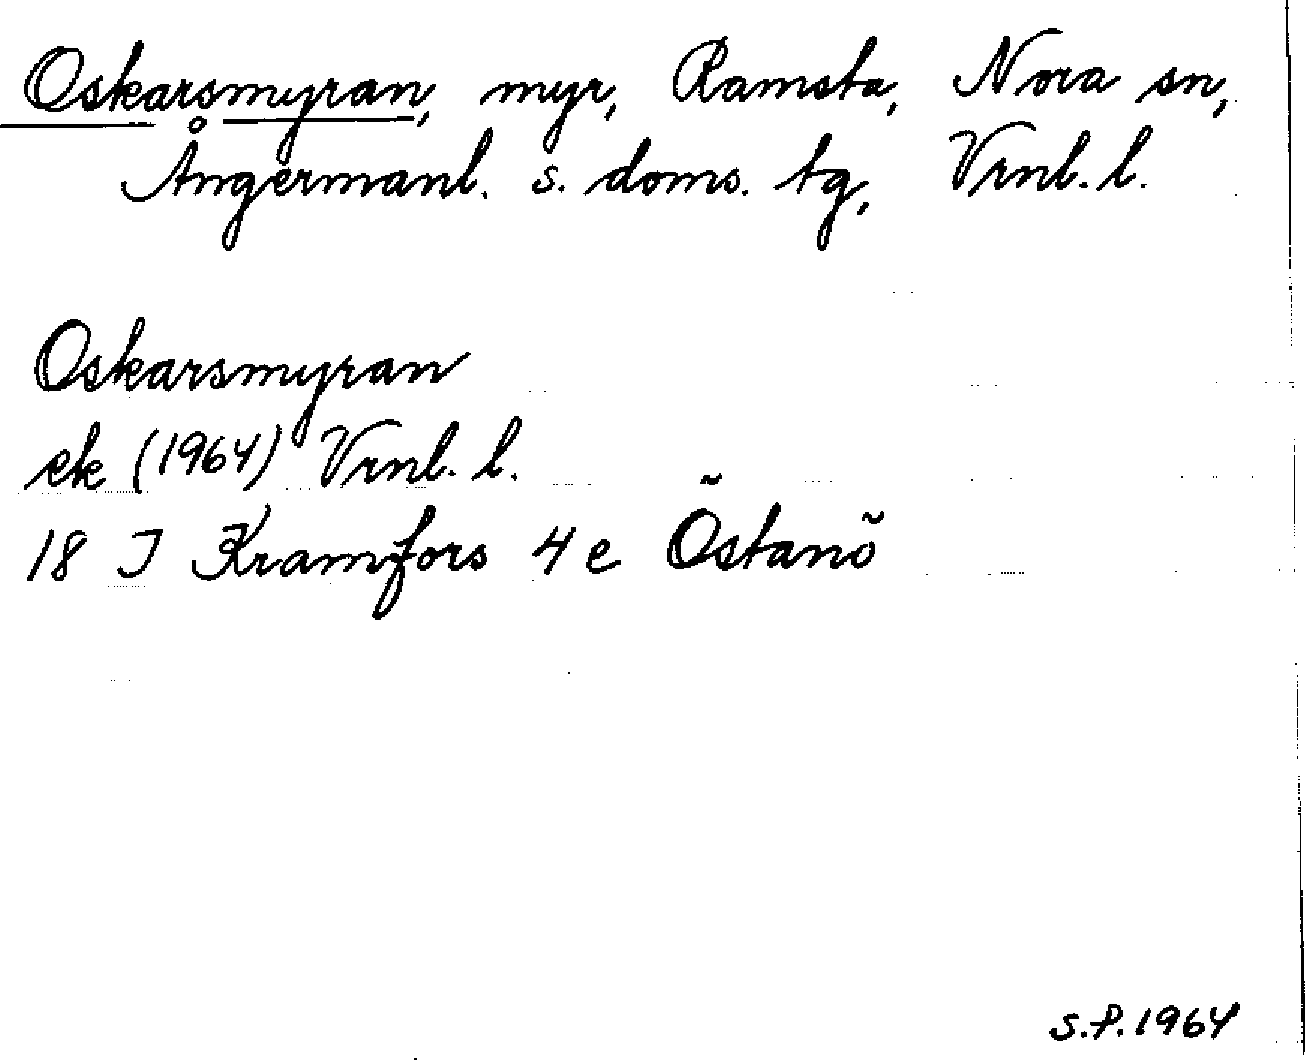 Oskarsmyran, myr, Ramsta, Nora sn,
Ångermanl. s. doms. tg, Vrnl. l.
Oskarsmyran
ek (1964) Vrnl. l.
18 I Kramfors 4 e Östanö
S.P. 1964